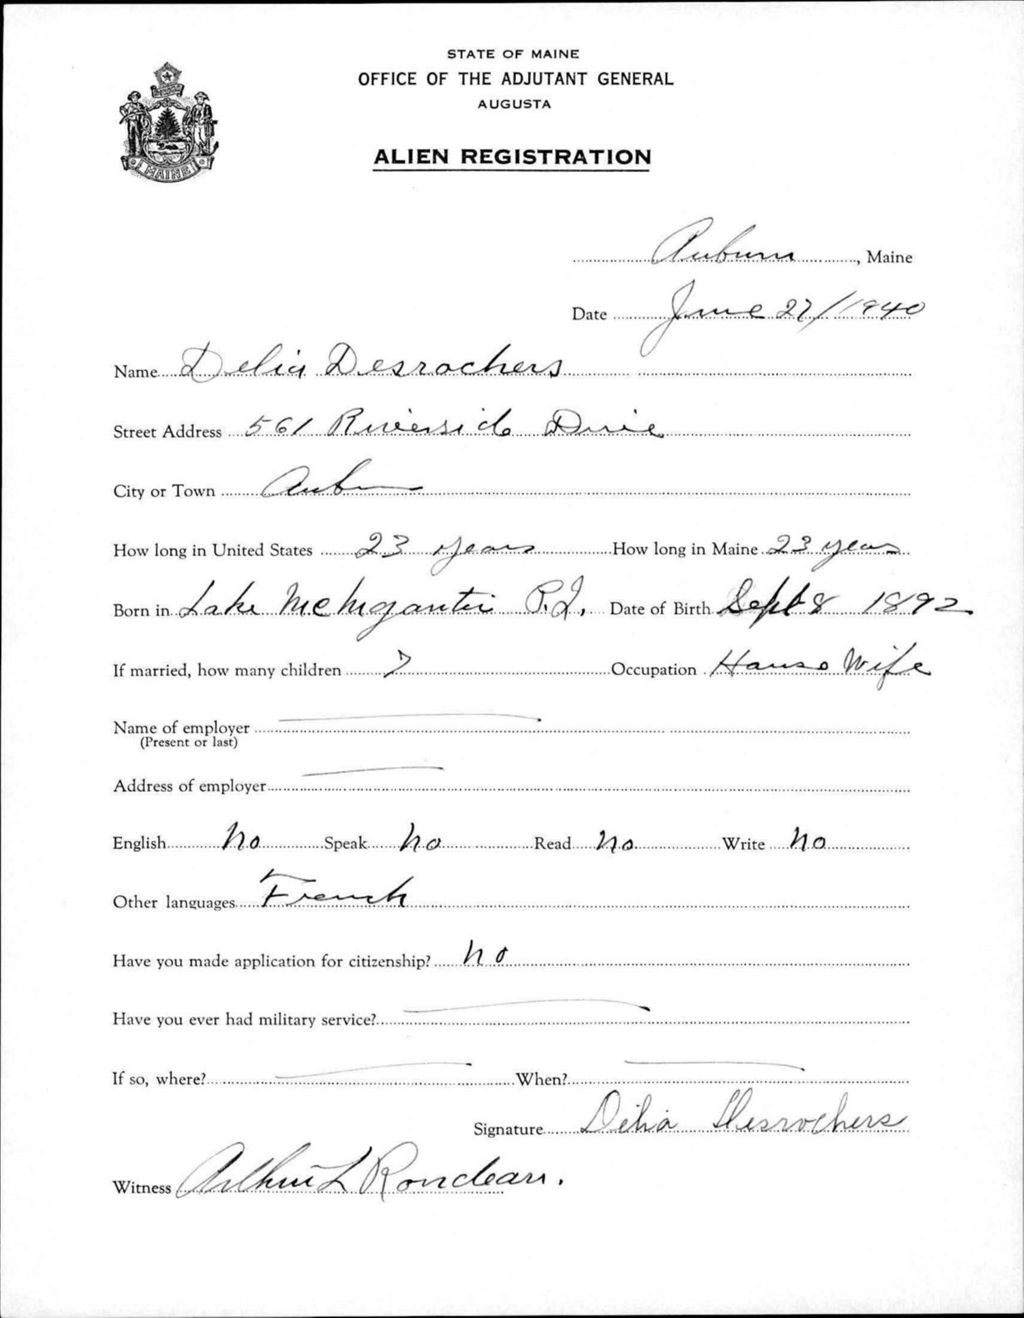 STATE OF MAINE
OFFICE OF THE ADJUTANT GENERAL
AUGUSTA
ALIEN REGISTRATION
MAINE
Auburn, Maine
Date June 27/1940
Name Delia Desrochers
Street Address 561 Riverside Drive
City or Town Auburn
How long in United States 23 years How long in Maine 23 years
Born in Lake Date of Birth Sept 8 1892
If married, how many children 7 Occupation House Wife
Name of employer
(Present or last)
Address of employer
English No Speak No Read No Write No
Other languages French
Have you made application for citizenship? No
Have you ever had military service?
If so, where? When?
Signature Delia Desrochers
Witness Arthur L Rondeau.